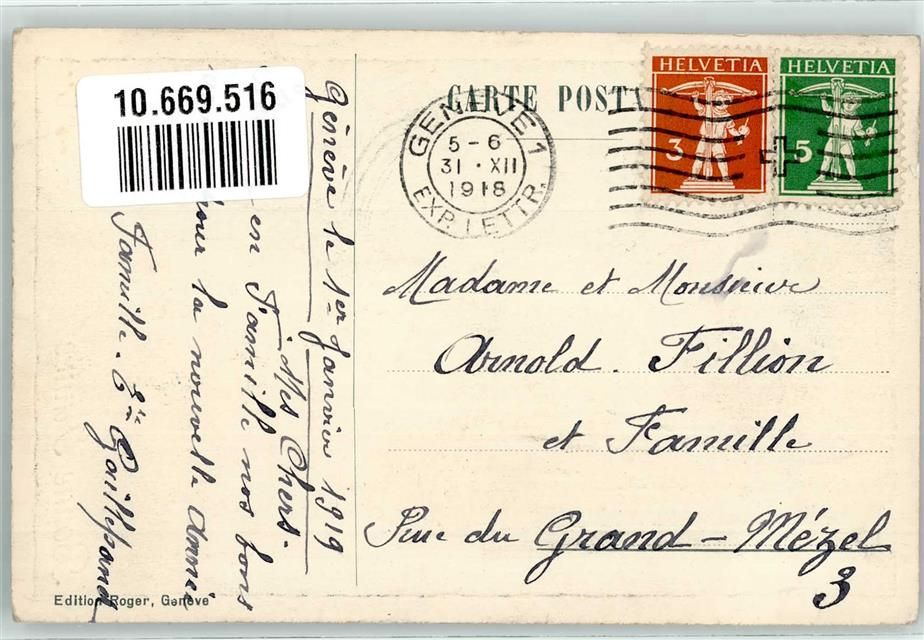 10.669.516
CARTE POSTA
HELVETIA
3
HELVETIA
5
GENÈVE 1
5-6
31·XII
1918
EXP. LETTR.
Genève le 1er Janvier 1919
Mes Chers.
en Famille nos bons
pour la nouvelle Année
Famille.
Madame et Monsieur
Arnold. Fillion
et Famille
Rue du Grand-Mézel
3
Edition Roger, Genève